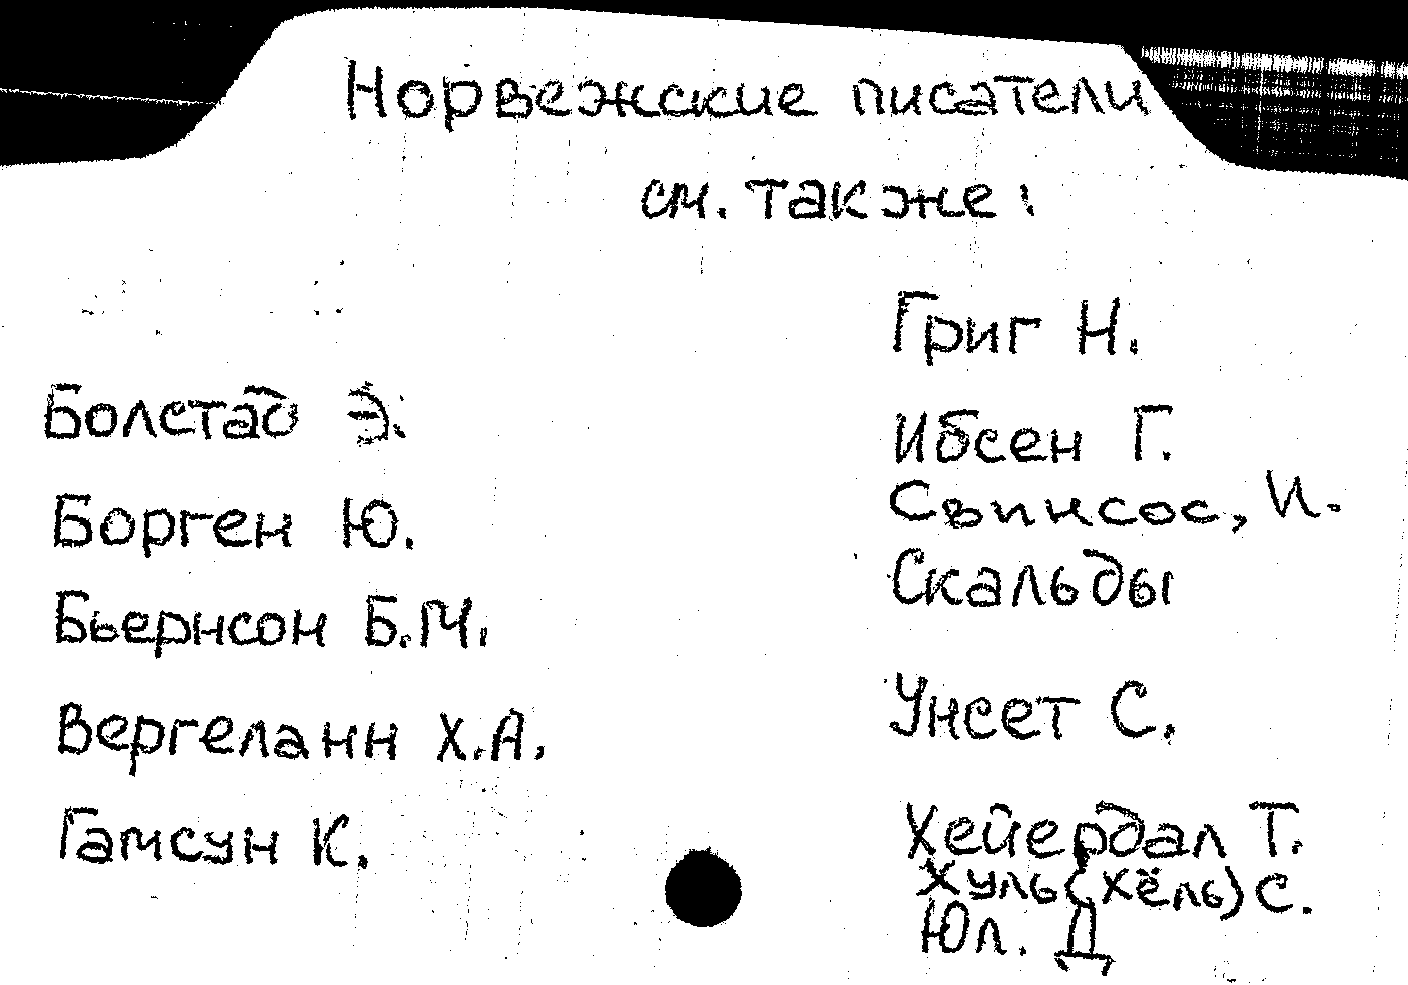 Норвежские писатели
см. также:
Болстад Э.
Борген Ю.
Бьернсон Б.М.
Вергеланн Х.А.
Гамсун К.
Григ Н.
Ибсен Г.
Свинсос, И.
Скальды
Унсет С.
Хейердал Т.
Хуль (Хёль) С.
Юл. Д